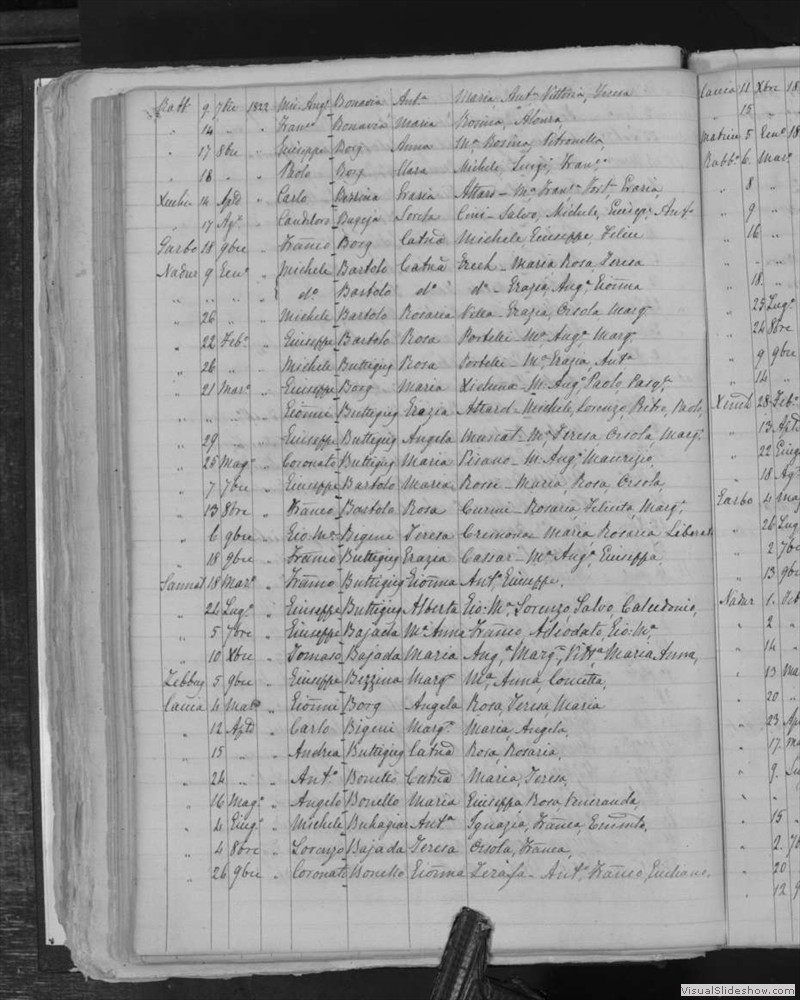 Rabb. 9 7bre 1822 Mic. Ang.o Bonavia Ant.a Maria, Ant.a Vittoria, Teresa
" 14 " " Fran.o Bonavia Maria Rosina,
" 17 8bre " Giuseppe Borg Anna M.a Rosina, Petronilla,
" 18 " " Paolo Borg Clara Michele, Luigi, Fran.o
14 Aple " Carlo Grazia Attard - M.a Fran.a Grazia,
" 17 Ag.o " Bugeja Teresa Cini - Salvo, Michele, Giusep.e Ant.o
Garbo 18 9bre " Franco Borg Catna Michele, Giuseppe, Felice
Nadur 9 Gen.o " Michele Bartolo Catna Grech - Maria Rosa, Teresa
" " " " d.o Bartolo d.o d.o - Grazia, Ang.a Gionna
" 26 " " Michele Bartolo Rosaria Vella - Grazia, Orsola Marg.a
" 22 Feb.o " Giuseppe Bartolo Rosa Portelli M.a Ang.a Marg.a
" 26 " " Michele Buttigieg Rosa Portelli - M.a Grazia, Ant.a
" 21 Mar.o " Giuseppe Borg Maria Xicluna - M. Ang.o Paolo Pasq.e
" " " " Gionni Buttigieg Grazia Attard - Michele, Lorenzo, Pietro, Paolo,
" 29 " " Giuseppe Buttigieg Angela Muscat - M.a Teresa Orsola, Marg.a
" 25 Mag.o " Coronato Buttigieg Maria Pisano - M. Ang.o Maurizio,
" 7 7bre " Giuseppe Bartolo Maria Rossi - Maria, Rosa, Orsola,
" 13 8bre " Franco Bartolo Rosa Curmi - Rosaria, Felicita, Marg.a
" 6 9bre " Gio M.a Bigeni Teresa Cremona - Maria Rosaria Liberat
" 18 9bre " Franco Buttigieg Grazia Cassar - M.a Ang.a Giuseppa,
Sannat 18 Mar.o " Franco Buttigieg Gionna Ant.o Giuseppe,
" 24 Lug.o " Giuseppe Buttigieg Alberta Gio: M.a Lorenzo, Salvo, Calcedonio,
" 5 7bre " Giuseppe Bajada M.a Anna Franco, Adiodato, Gio: M.a
" 10 Xbre " Tomaso Bajada Maria Ang.a Marg.a Vitt.a Maria Anna,
Zebbug 5 9bre " Giuseppe Bezzina Marg.a M.a Anna, Concetta,
Caccia 4 Mar.o " Gionni Borg Angela Rosa, Teresa Maria
" 12 Aple " Carlo Bigeni Marg.a Maria Angela,
" 15 " " Andrea Buttigieg Catna Rosa, Rosaria,
" 24 " " Ant.o Bonello Catna Maria, Teresa,
" 16 Mag.o " Angelo Bonello Maria Giuseppa Rosa Veneranda,
" 4 Giug.o " Michele Buhagiar Ant.a Ignazia, Franca,
" 4 8bre " Lorenzo Bajada Teresa Orsola, Franca,
" 26 9bre " Coronato Bonello Gionna Zerafa - Ant.o Franco, Giuliano.
Caccia 11 Xbre 18
" 15 "
5 Gen.o 18
Rabb.o 6 Mar.o
" 8 "
" 9 "
" 16 "
" " "
" 18 "
" 25 Lug.o
" 24 8bre
" 9 9bre
" 14 "
28 Feb.o
" 13 Aple
" 22 Giug
" 18 Ag.o
Garbo 4 Mag
" 26 Lug
" 2 7bre
" 13 9bre
Nadur 1
" 2 "
" 14 "
" 13 Ma
" 20 "
" 23 Ap
" 17 Ma
" 9
" 15 "
" 2 7b
" 20
" 12 9
VisualSlideshow.com